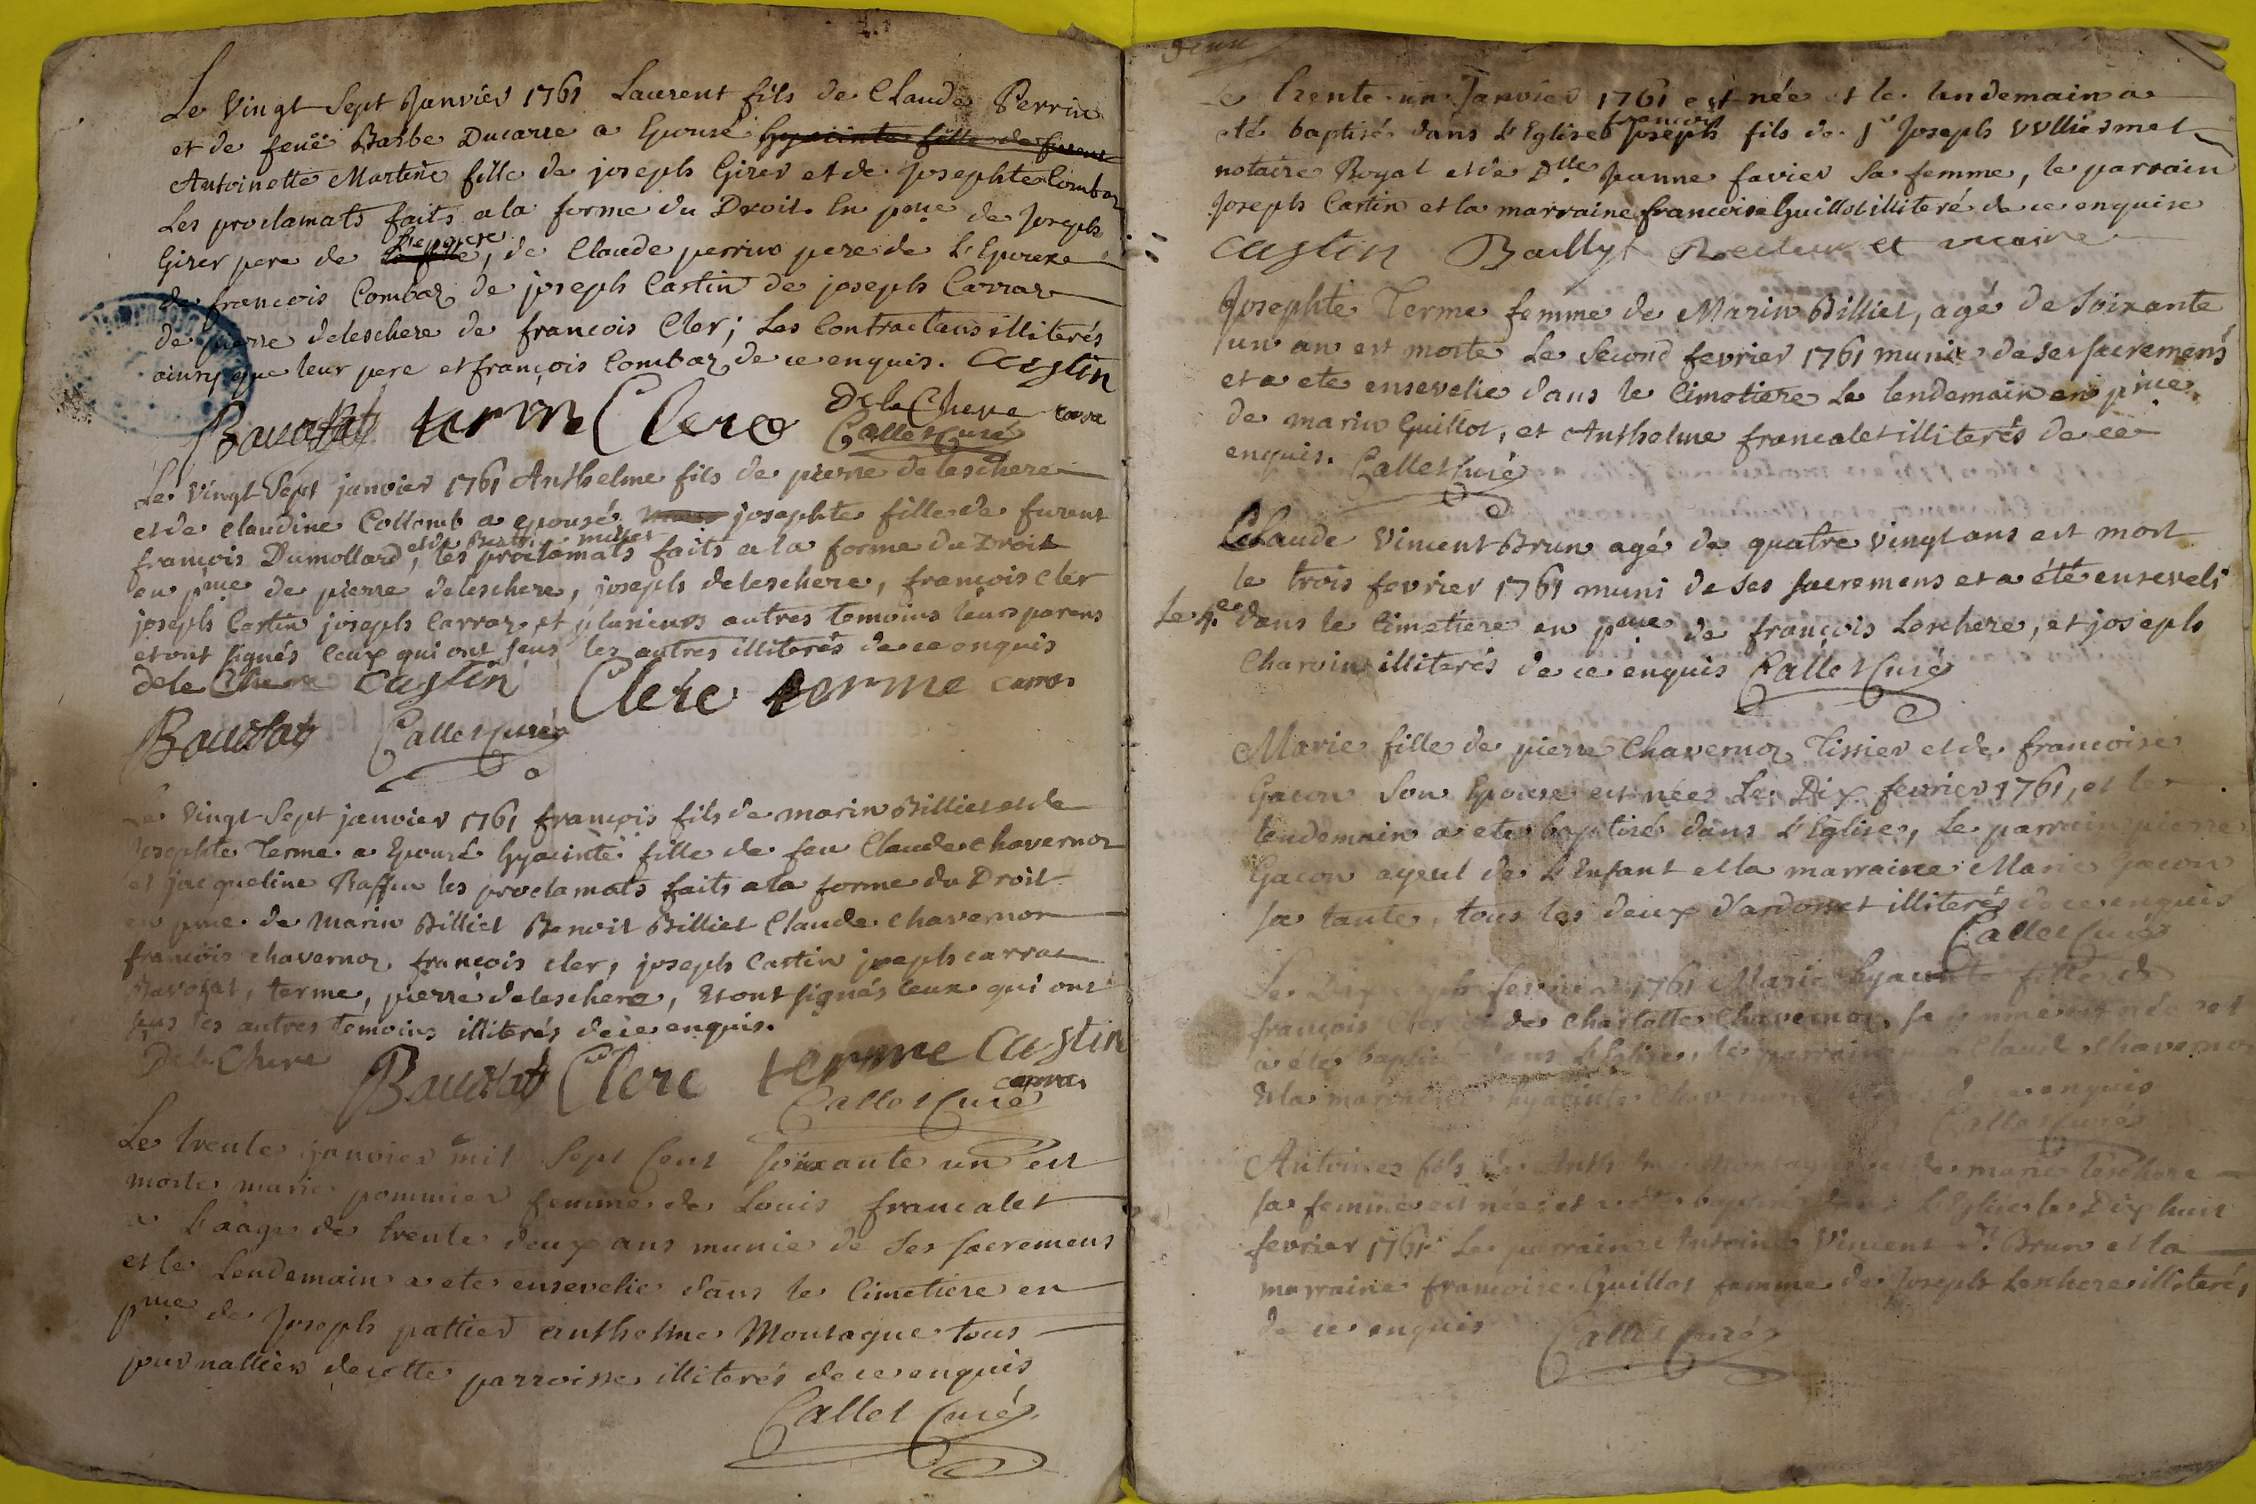 Le Vingt Sept Janvier 1761 Laurent fils de Claude Perrin
et de feuë Barbe Ducarre a Epousé hyacinte fille de furent
Antoinette Martine fille de joseph Girer et de Josephte Combaz
Les proclamats faits a la forme du Droit En pnce de Joseph
Girer pere de la fille L'epouse, de Claude perrin pere de L'Epouxe
de francois Combaz de joseph Castin de joseph Carraz
de pierre deleschere de francois Cler; Les Contractans illiterés
ainsy que leur pere et françois Combaz de ce enquis. Castin
Bavozat terme Clerc De le Chere carra
Callet Curé
Le Vingt Sept janvier 1761 Anthelme fils de pierre deleschere
et de Claudine Collomb a epousé josephte fille de furent
françois Dumollard, et de millet les proclamats faits a la forme du Droit
en pnce de pierre deleschere, joseph deleschere, françois Cler
joseph Castin joseph Carraz et plusieurs autres temoins leurs parens
et ont signés Ceux qui ont sçus les autres illiterés de ce enquis
dele Chere Castin Clerc terme carraz
Bavozat Callet Curé
Le Vingt Sept janvier 1761 françois fils de marin Billiet et de
Josephte Terme a Epousé hyacinte fille de feu Claude Chavernoz
et jacqueline Raffin les proclamats faits a la forme du Droit
en pnce de Marin Billiet Benoit Billiet Claude Chavernoz
francois Chavernoz, françois Cler, joseph Castin joseph carraz
Bavozat, terme, pierre deleschere, Et ont signés Ceux qui ont
sçus les autres temoins illiterés de ce enquis.
De le Chere Bavozat Clerc terme Castin
carraz
Callet Curé
Le trente janvier mil Sept Cent soixante un est
morte marie pommier femme de Louis francalet
a L'aage de trente deux ans munie de Ses sacremens
et le Lendemain a ete ensevelie dans le Cimetiere en
pnce de Joseph pattier anthelme Montagne tous
journallier de cette parroisse illiterés de ce enquis
Callet Curé
Le trente un Janvier 1761 est née et le lendemain a
eté baptisé dans L'Eglise françois joseph fils de Sr Joseph Vulliermet
notaire Royal et de Dlle Jeanne favier Sa femme, le parrain
Joseph Castin et la marraine francoise Guillot illiteré de ce enquise
Castin Bailly Recteur et vicaire
Josephte Terme femme de Marin Billiet, agé de Soixante
un an est morte Le Second fevrier 1761 munie de Ses sacremens
et a ete ensevelie dans le Cimetiere Le lendemain en pnce
de marin Guillot, et Anthelme francalet illiterés de ce
enquis. Callet Curé
Claude Vincent Brun agé de quatre vingt ans est mort
le trois fevrier 1761 muni de Ses sacremens et a été enseveli
Le 4e dans le Cimetiere en pnce de françois Leschere, et joseph
Charvin illiterés de ce enquis Callet Curé
Marie fille de pierre Chavernoz Tissier et de francoise
Gacon Son Epouse est née Le Dix fevrier 1761, et le
lendemain a ete baptisé dans L'Eglise, Le parrain pierre
Gacon ayeul de L'Enfant et la marraine Marie gacon
sa tante, tous les deux d'ardosset illiterés de ce enquis
Callet Curé
Le Dix fevrier 1761 Marie hyacinte fille de
françois Cler et de Charlotte Chavernoz, sa femme est née et
a ete baptisé dans L'Eglise, le parrain Claude Chavernoz
Et la marraine hyacinte de ce enquis
Callet Curé
Antoine fils de Anthelme Montagne et de marie leschere
sa femme est née et a eté baptisé dans L'Eglise le Dix huit
fevrier 1761 Le parrain Antoine Vincent dt Brun et la
marraine francoise Guillot femme de Joseph Leschere illiterés
de ce enquis Callet Curé